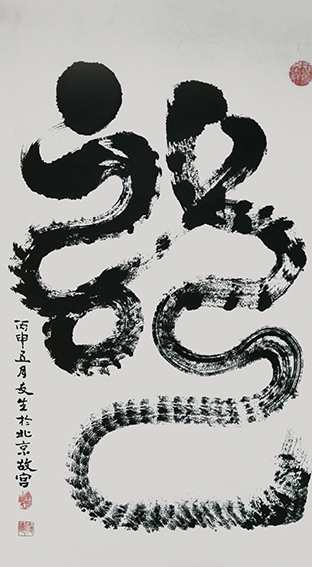 龍
丙申五月友生於北京故宫